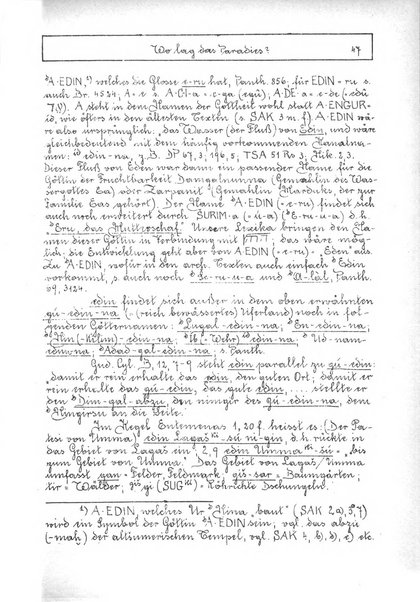 Wo lag das Paradies? 47
ᵈA·EDIN,¹) welches die Glosse e-ru hat, Panth. 856; für EDIN = ru s.
auch Br. 4524; A = e s. A·CI·a = e-ga (egû), A·DE·a = e-de (= edû
A steht in dem Namen der Gottheit wohl statt A·ENGUR-
id, wie öfters in den ältesten Texten (s. SAK 3 m. f) A·EDIN wä-
re also ursprünglich „das Wasser (der Fluß) von Edin, und wäre
gleichbedeutend mit dem häufig vorkommenden Kanalna-
men: id edin-na, z.B. DP 67, 3; 196, 5; TSA 51 Rs 3; Nik. 2, 3.
Dieser Fluß von Eden war dann ein passender Name für die
Göttin der Fruchtbarkeit Damgalnunna (Gemahlin des Was-
sergottes Ea) oder Zarpanit (Gemahlin Marduks, der zur
Familie Eas gehört). Der Name ᵈA·EDIN (= e-ru) findet sich
auch noch erweitert durch ŠURIM-a (= ú-a) (ᵈE-ru-u-a) d.h.
„Eru, das Mutterschaf". Unsere Lexika bringen den Na-
men dieser Göttin in Verbindung mit das wäre mög-
lich; die Entwicklung geht aber von A·EDIN (= e-ru) · „Eden" aus.
Zu ᵈA·EDIN, wofür in den arch. Texten auch einfach ᵈEdin
vorkommt, s. auch noch ᵈSe-ru-u-a und ᵈA-lál, Panth.
3124.
edin findet sich außer in dem oben erwähnten
gú-edin-na (= (reich bewässertes) Uferland) noch in fol-
genden Götternamen: ᵈLugal-edin-na; ᵈEn-edin-na;
ᵈNin (-Kilim)-edin-na; ᵈIb (= Wehr) edin-na; ᵈUd-nam-
edin-na; ᵈAdad-gal-edin-na; s. Panth.
Gud. Cyl. B, 12, 7-9 steht edin parallel zu gú-edin:
„damit er rein erhalte das edin, den guten Ort; damit er
rein erhalte das gú-edin, das gute edin, .... stellte er
den ᵈDim-gal-abzu, den niniger des gú-edin-na, dem
ᵈNingirsu an die Seite."
Im Kegel Entemenas 1, 20 f. heisst es: (Der Pa-
tesi von Umma) edin Lagaš ᵏⁱ-šù ni-gin, d.h. rückte in
das Gebiet von Lagaš ein"; 2, 9 edin Umma ᵏⁱ-šù = „bis
zum Gebiet von Umma". Das Gebiet von Lagaš/Umma
umfasst gan = Felder, Feldmark; giš-sar = Baumgärten;
tir = Wälder; giš gi (SUG ᵏⁱ) = Röhrichte Dschungeln.
¹) A·EDIN, welches Ur-ᵈNina „baut" (SAK 2a), 3, 7)
wird ein Symbol der Göttin ᵈA·EDIN sein; vgl. das abzu
(-maḫ) der altsumerischen Tempel, vgl. SAK 4, b), d), e) etc.